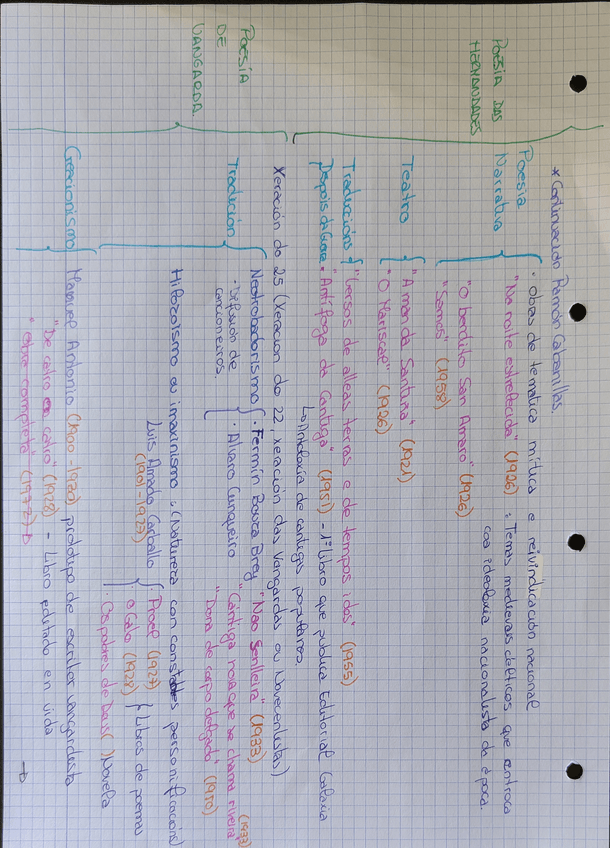 * Continuación Ramón Cabanillas
POESÍA DAS HERMANDADES
Poesía Narrativa
· Obras de temática mítica e reivindicación nacional
"Na noite estrelecida" (1926) : Temas medievais célticos que entroca
coa ideoloxía nacionalista da época.
"O bendito San Amaro" (1926)
"Samos" (1958)
Teatro
"A man da Santiña" (1921)
"O Mariscal" (1926)
Traducións
"Versos de alleas terras e de tempos idos" (1955)
Despois da Guerra
"Antífoga da Cantiga" (1951) - 1º libro que publica Editorial Galaxia
↳ Antoloxía de cantigas populares.
POESÍA DE VANGARDA
Xeración do 25 (Xeración do 22, xeración das Vangardas ou Novecentistas)
Tradución
Neotrobadorismo
- Difusión de cancioneiros.
· Fermín Bouza Brey "Nao Senlleira" (1933)
· Álvaro Cunqueiro "Cántiga nova que se chama riveira (1933)
"Dona de corpo delgado" (1950)
Hilozoísmo ou imaxinismo : (Natureza con constantes personificacións)
Luis Amado Carballo (1901-1927)
· Proel (1927)
O Galo (1928)
Libros de poemas
· Os pobres de Deus ( ) Novela
Creacionismo
Manuel Antonio (1900-1930) prototipo de escritor vangardista
"De catro a catro" (1928) - Libro editado en vida
"Obra completa" (1972)
→